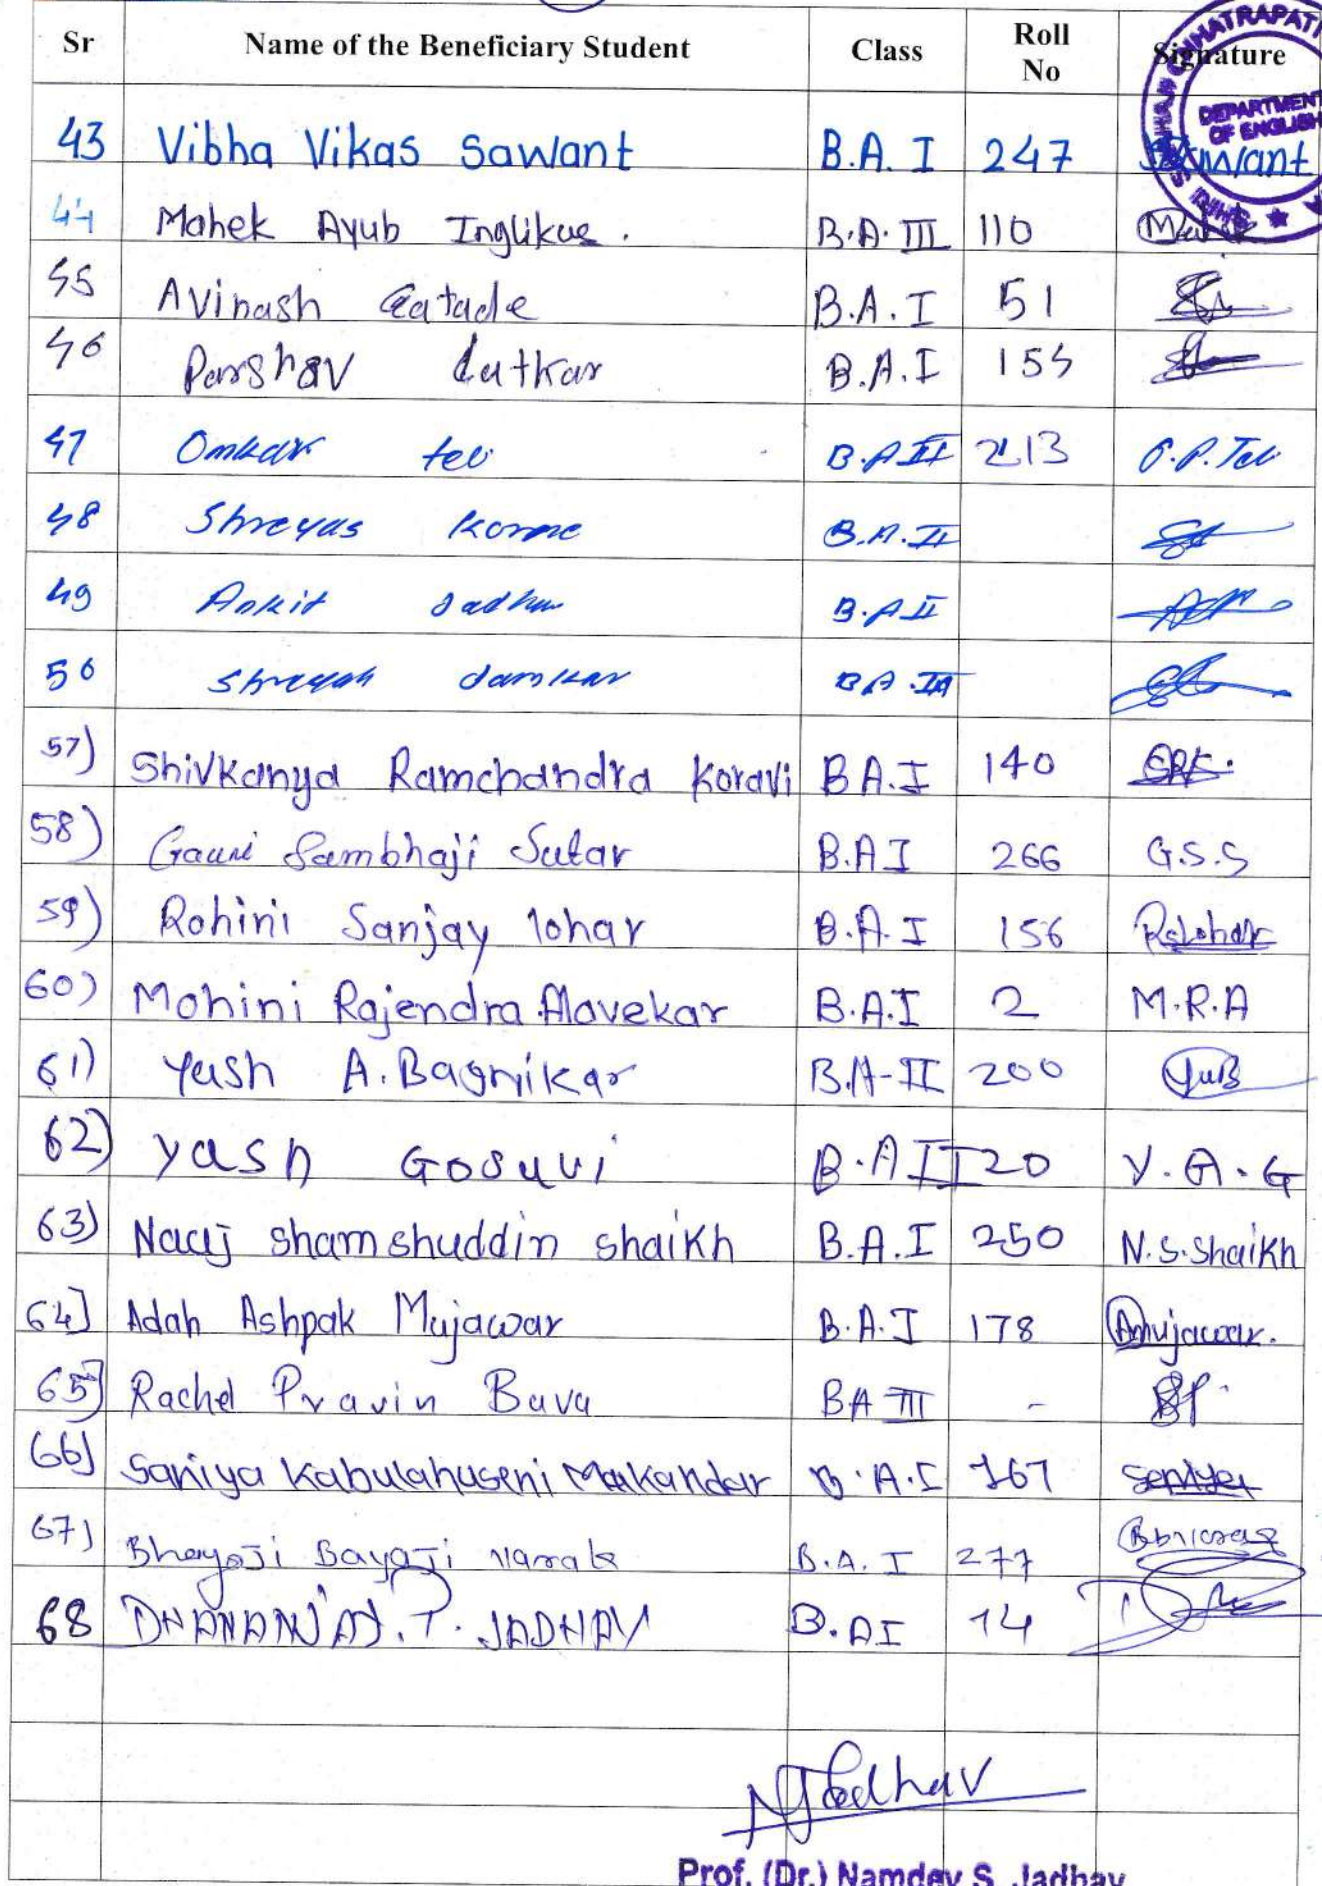 Sr Name of the Beneficiary Student Class Roll No Signature
CHHATRAPATI
DEPARTMENT OF ENGLISH
43 Vibha Vikas Sawant B.A. I 247 Sawant
44 Mahek Ayub B.A. III 110
45 Avinash Gatade B.A. I 51
46 Parshav B.A. I 155
47 Omkar teli B.A II 213 O.P. Teli
48 Shreyas B.A. II
49 Ankit Jadhav B.A II
50 Shreyash Damkar B A. III
57) Shivkanya Ramchandra Koravi BA.I 140 SRK.
58) Gauri Sambhaji Sutar B.A I 266 G.S.S
59) Rohini Sanjay lohar B.A. I 156 RsLohar
60) Mohini Rajendra Alavekar B.A.I 2 M.R.A
61) Yash A. Bagnikar B.A-II 200
62) Yash Gosavi B.A II 20 Y.G.G
63) Naaj shamshuddin shaikh B.A. I 250 N.S.Shaikh
64] Adah Ashpak Mujawar B.A.I 178 Amujawar.
65] Rachel Pravin Bava BA III -
66] Saniya Kabulahuseni Makandar B.A.I 167 Saniya
67) Bayaji B.A. I 277
68 DHANANJAY. P. JADHAV B. AI 14
NJadhav
Prof. (Dr.) Namdev S. Jadhav